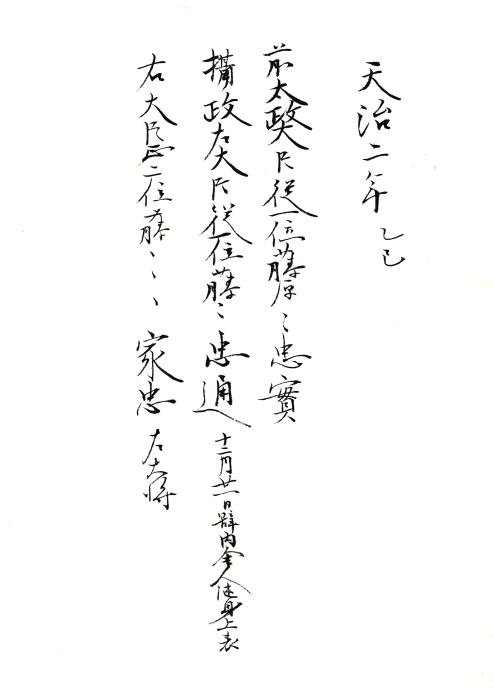 天治二年 乙巳
前太政大臣従一位藤原ヽ忠實
攝政左大臣従一位藤ヽ忠通 十二月廿一日辞内舎人随身上表
右大臣正二位藤ヽヽヽ家忠 左大将